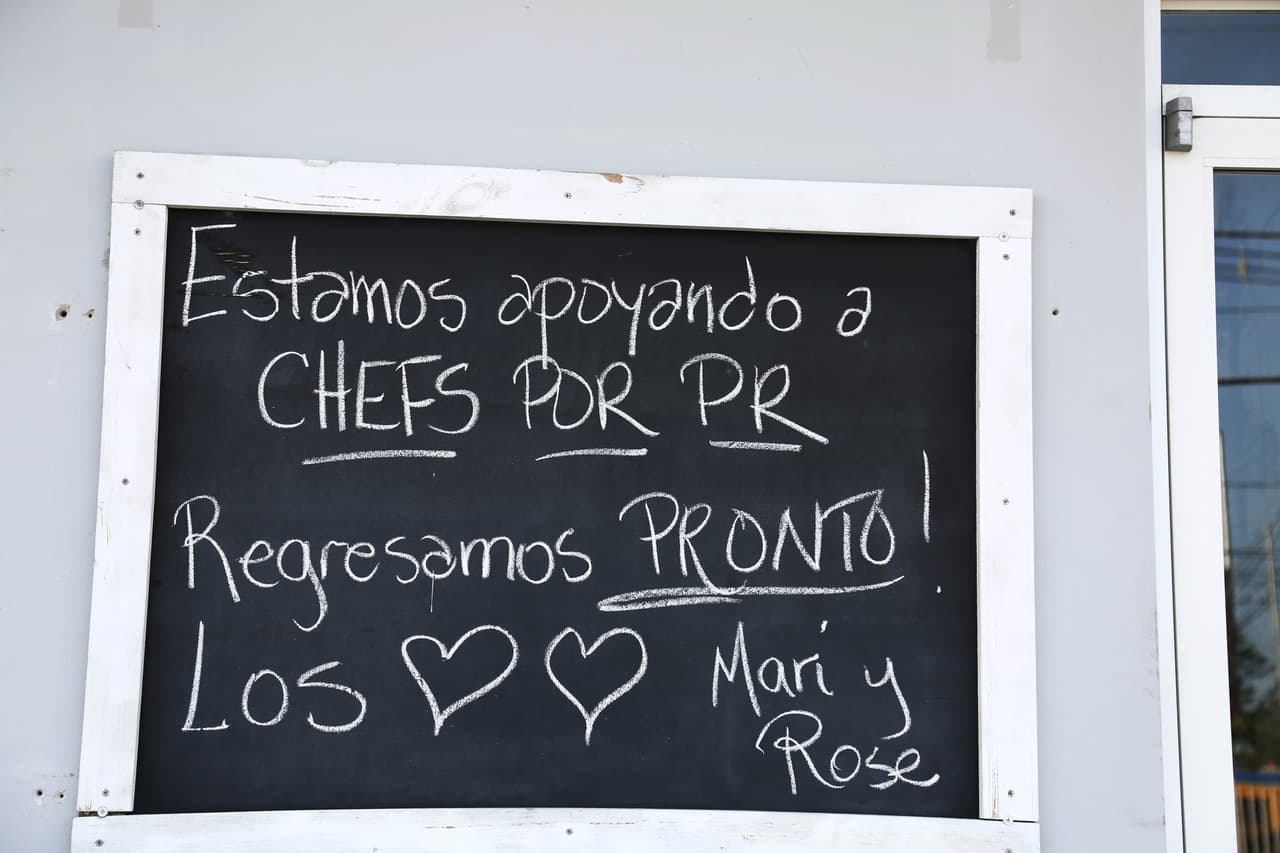 Estamos apoyando a
CHEFS POR PR
Regresamos PRONTO!
Los ♡ ♡ Mari y
Rose